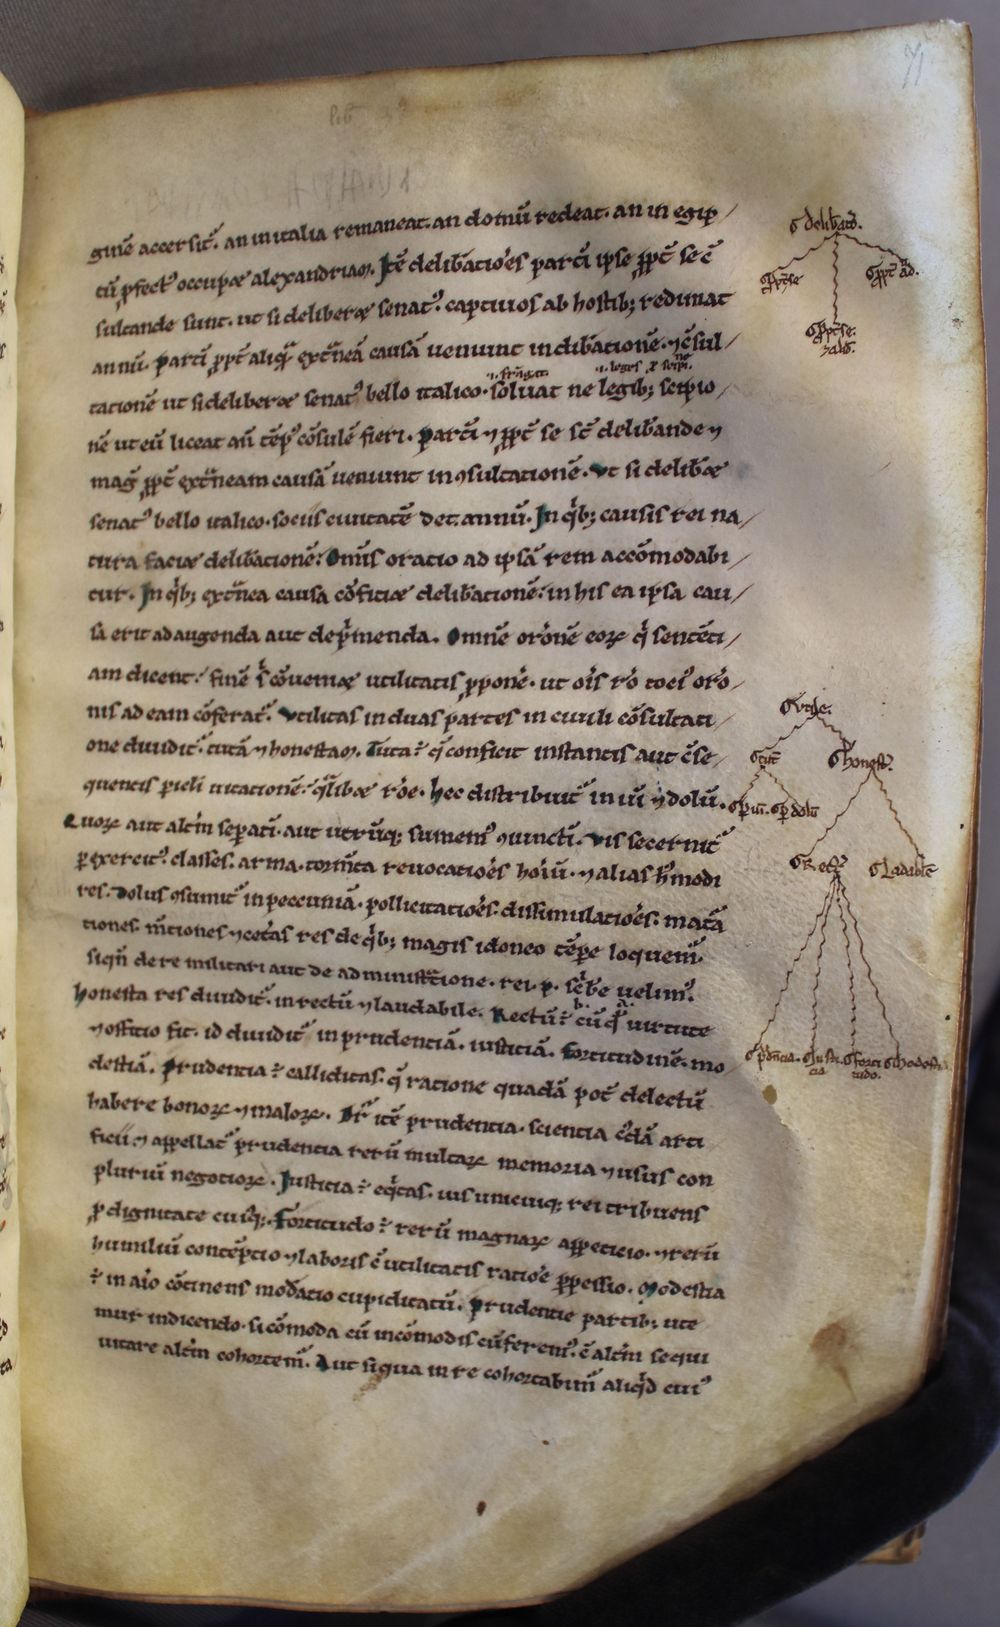 71
lib
ginē accersit᷑. an in italia remaneat. an domū redeat. an in egip /
tū ꝓfect᷒ occupet alexandriam. Itē delibatiōes partī ipse ꝓpt̄ se c̄
sultande sunt. ut si deliberet senat᷒. captiuos ab hostib; redimat
an nū. Partī ꝓpt̄ aliqͣ̄ extͥneā causā ueniunt in delib̄ationē. ⁊ c̄sul /
.i. frāgat .i. leges ꝑ scipi. nē
tationē ut si deliberet senat᷒ bello italico. soluat ne legib; scipio /
nē ut eū liceat añ tēp᷒ cōsulē fieri. Partī ⁊ ꝓpt̄ se st̄ deliƀande ⁊
mag̃ ꝓpt̄ extͥneam causā ueniunt in ꝯsultationē. Vt si deliƀet
senat᷒ bello italico. sociis ciuitatē det. an nū. In qͥb; causis rei na /
tura faciet delib̄ationē: Om̄is oratio ad ipsā rem accōmodabi /
tur. In qͥb; extͥnea causa cōficiet delib̄ationē: in his ea ipsa cau /
sa erit ad augenda aut depͥmenda. Omnē orōnē eoꝝ qͥ sentēti /
am dicent: finē sͥ cōueniet utilitatis ꝓponē. ut oīs rō toci᷒ orō /
nis ad eam cōferat᷑. Vtilitas in duas partes in ciuili cōsultati /
one diuidit᷑. tutā ⁊ honestam. Tuta ē qͣ̄ conficit instantis aut c̄se /
quentis ꝑicli uitationē: qͣlibet rōe. Hec distribuit᷑ in uī ⁊ dolū.
Quoꝝ aut alt̄m sepatī. aut utrūq; sumem᷒ ꝯiunctī. Vis secernit᷑
ꝑ exercit᷒. classes. arma. torm̄ta reuocatiōes hoīū. ⁊ alias h᷒modi
res. Dolus ꝯsumit᷑ in peccuniā. pollicitatiōes. dissimulatiōes. matā
tiones. m̄tiones ⁊ cet̄as res de qͥb; magis idoneo tēpe loquem᷑.
siqn̄ de re militari aut de administͣtione. rei. p. sc̄be uelim᷒.
b. a.
Honesta res diuidit᷑. in rectū ⁊ laudabile. Rectū ē cū qͣ uirtute
⁊ offitio fit. id diuidit᷑ in prudentiā. iusticiā. fortitudinē. mo /
destiā. Prudentia ē calliditas. qͣ̄ ratione quadā pot̄ delectū
habere bonoꝝ ⁊ maloꝝ. Dr̄ itē prudentia. scientia c̄dā arti
ficii ⁊ appellat᷑ prudentia rerū multaꝝ memoria ⁊ usus con
pluriū negotioꝝ. Iusticia ē eqͥtas. ius unicuiq; rei tribuens
ꝓ dignitate cuiq;. Fortitudo ē rerū magnaꝝ appeticio. ⁊ rerū
humiliū contēptio ⁊ laboris c̄ utilitatis ratiōe ꝑpessio. Modestia
ē in aīo cōtinens modatio cupiditatū. Prudentie partib; ute
mur in dicendo. si cōmoda cū incōmodis cūferem᷒. c̄ alt̄m sequi
uitare alt̄m cohortem᷑. Aut siqua in re cohortabim᷑ aliqͥd cui᷒
delib̄atō.
ꝓpt̄ se
ꝓpt̄ ad.
ꝓpt̄ se.
⁊ aliō.
Vtile.
tut̄
honest.
ꝑ uī.
ꝑ dolū
Rect᷒
Laudabile
pͥdn̄cia.
Iusti
cia
forti
tudo.
Modestia